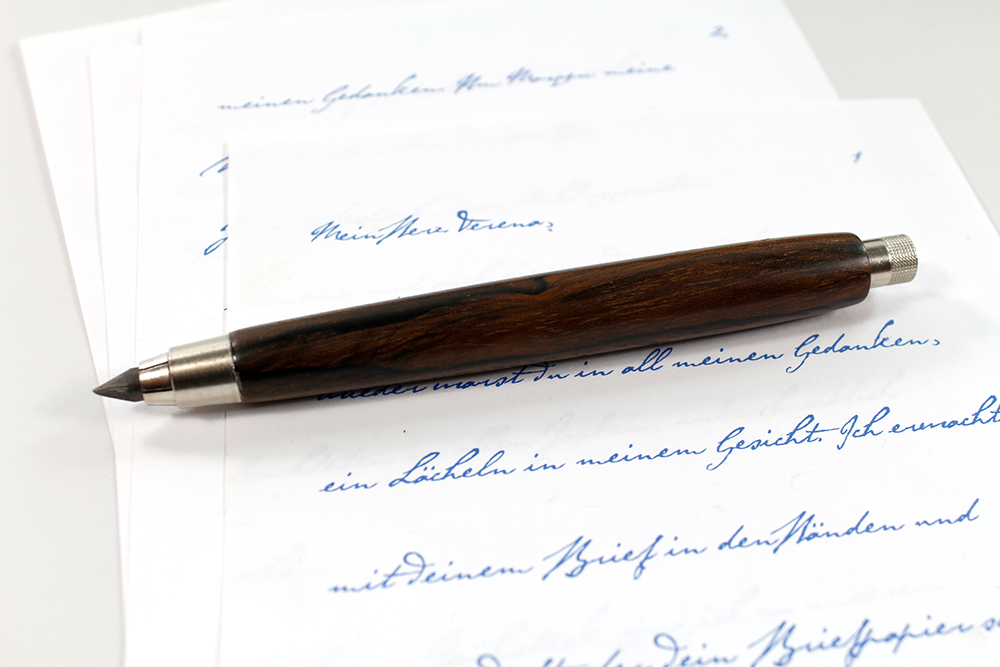 2
meinen Gedanken. Am Morgen meine
1
Mein Herz Verena,
wieder warst du in all meinen Gedanken,
ein Lächeln in meinem Gesicht. Ich erwachte
mit deinem Brief in den Händen und
dein Briefpapier